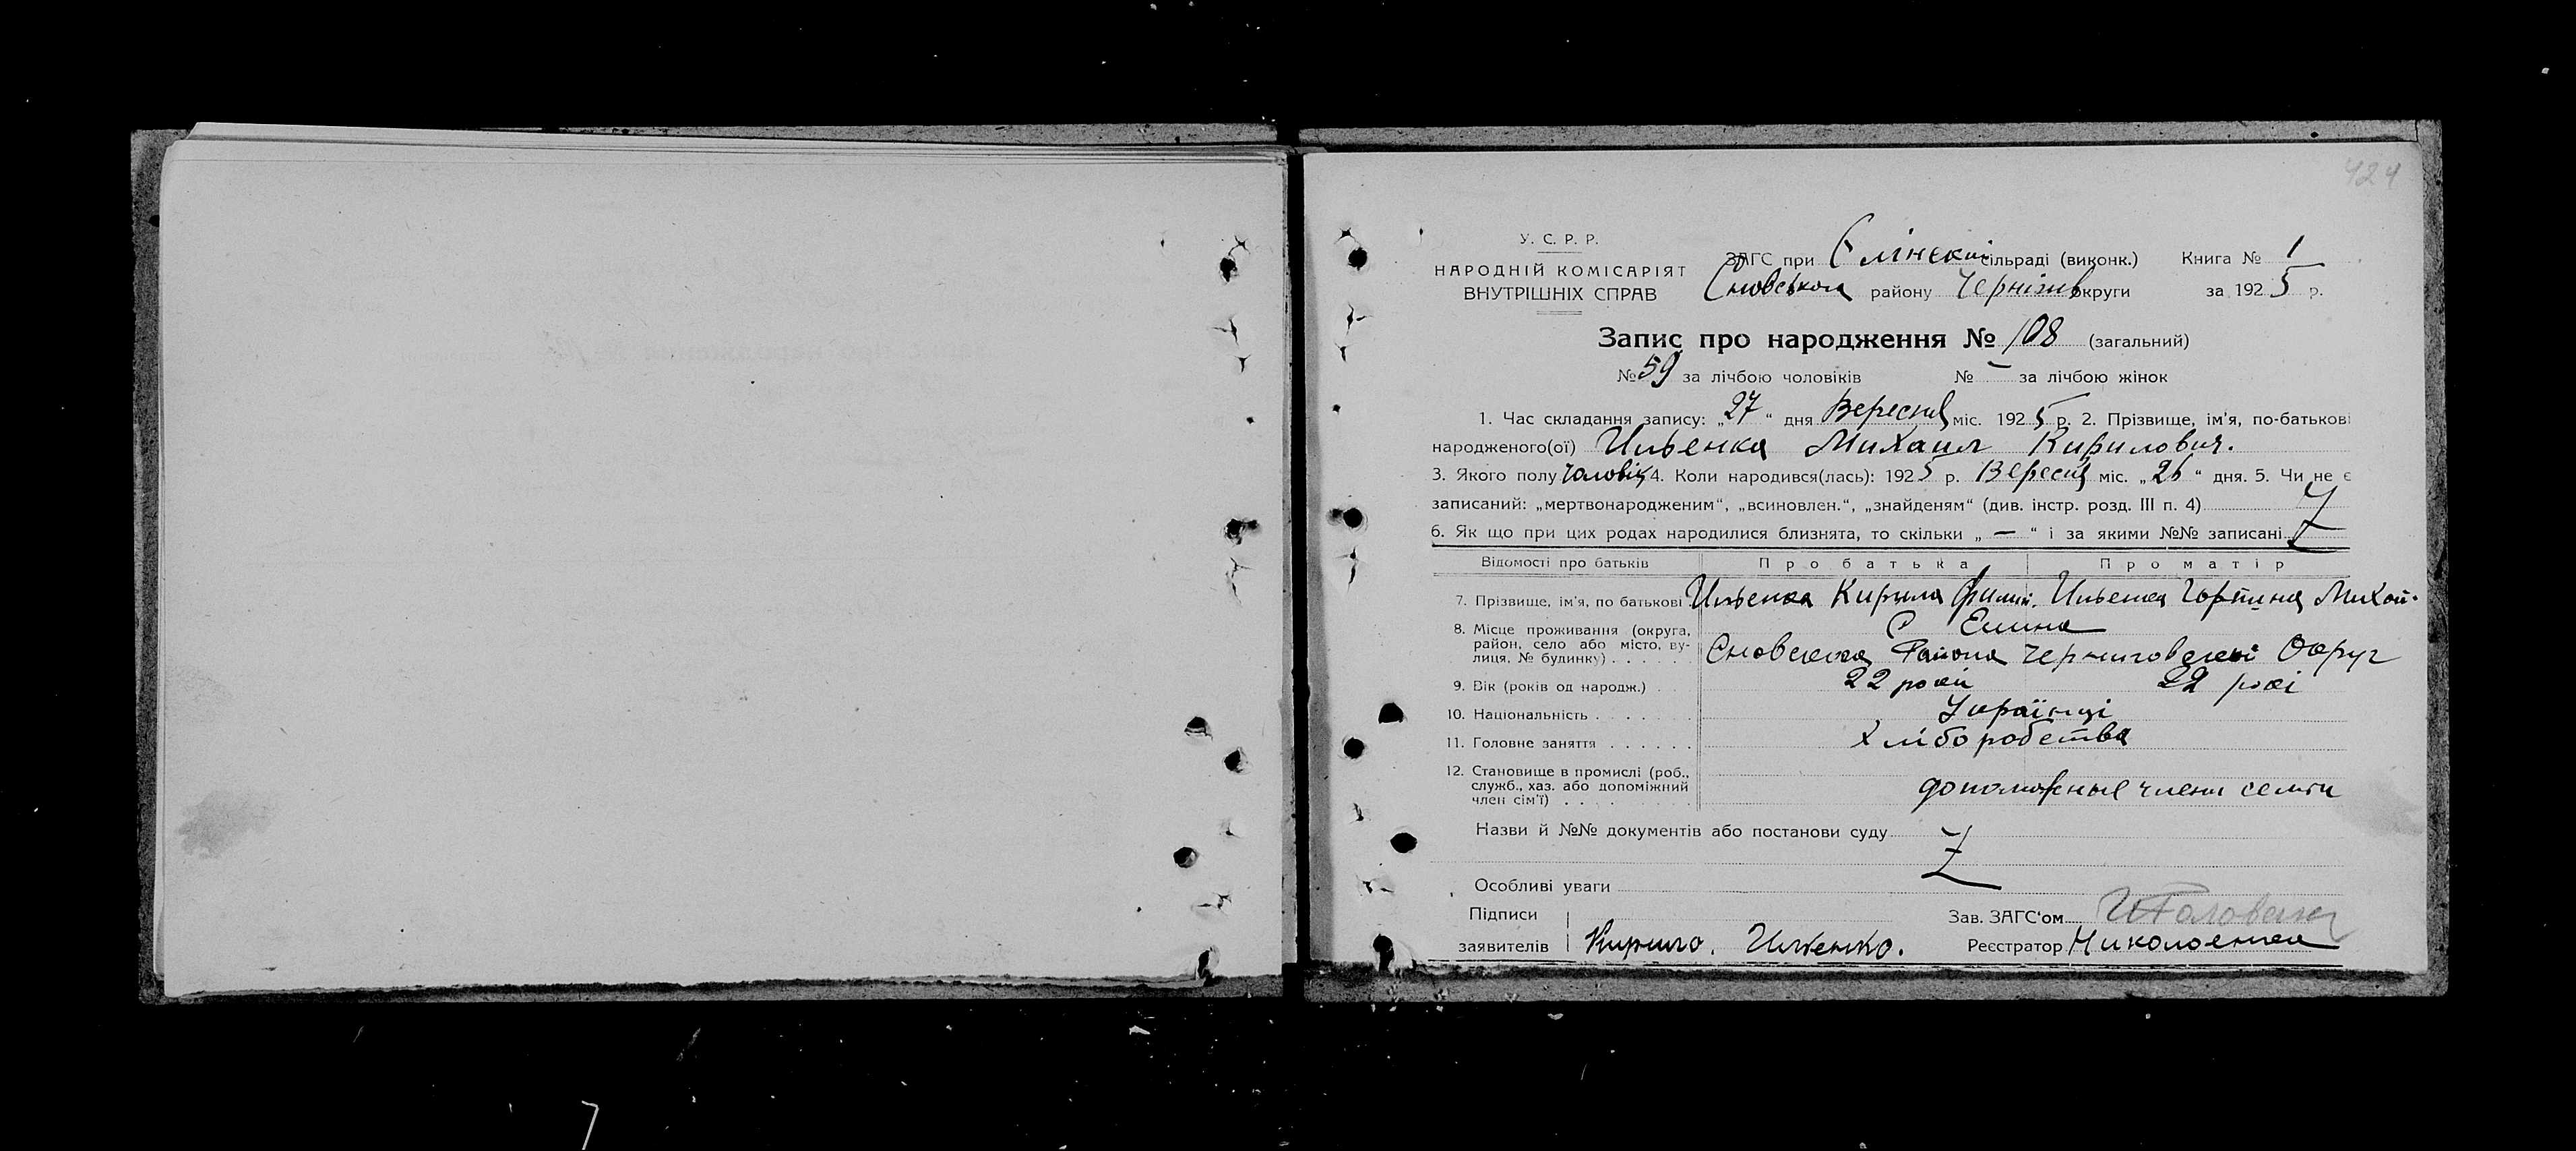 424
У. С. Р. Р.
НАРОДНІЙ КОМІСАРІЯТ
ВНУТРІШНІХ СПРАВ
ЗАГС при Єлінскій сільраді (виконк.) Книга № 1
Сновського району Чернігів округи за 1925 р.
Запис про народження № 108 (загальний)
№ 59 за лічбою чоловіків № — за лічбою жінок
1. Час складання запису: „27“ дня Вересня міс. 1925 р. 2. Прізвище, ім'я, по-батькові
народженого(ої) Ильенка Михаил Кирилович.
3. Якого полу чоловік 4. Коли народився(лась): 1925 р. Вересня міс. „26“ дня. 5. Чи не є
записаний: „мертвонародженим“, „всиновлен.“, „знайденям“ (див. інстр. розд. III п. 4)
6. Як що при цих родах народилися близнята, то скільки „—“ і за якими №№ записані
Відомості про батьків Про батька Про матір
7. Прізвище, ім'я, по батькові Ильенка Кирила Филип. Ильенка Горпина Михай.
8. Місце проживання (округа, район, село або місто, вулиця, № будинку) С Елина
Сновского Района Черниговскої Округ
9. Вік (років од народж.) 22 роки 22 рокі
10. Національність Українці
11. Головне заняття хліборобства
12. Становище в промислі (роб., служб., хаз. або допоміжний член сім'ї) допоможные члены семьи
Назви й №№ документів або постанови суду
Особливі уваги
Підписи Зав. ЗАГС'ом
заявителів Кирило. Ильенко. Реєстратор Николаенка